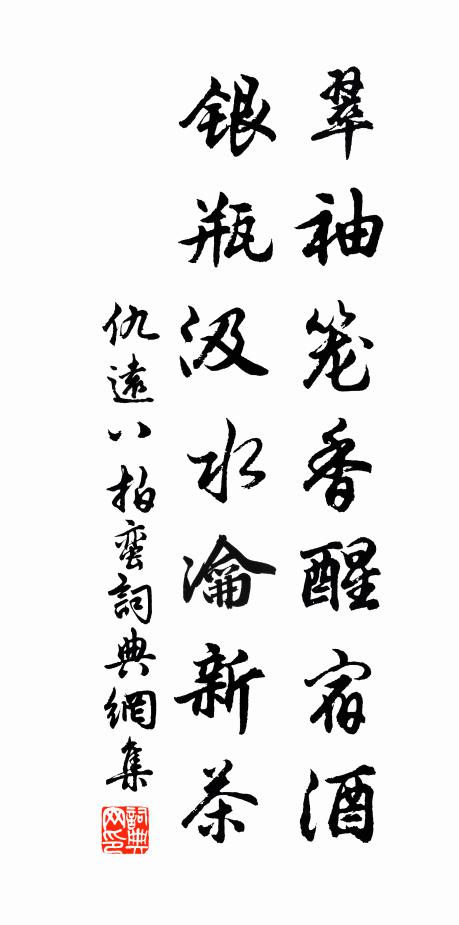 翠袖笼香醒宿酒
银瓶汲水瀹新茶
仇遠八拍蛮詞典網集
詞典网印